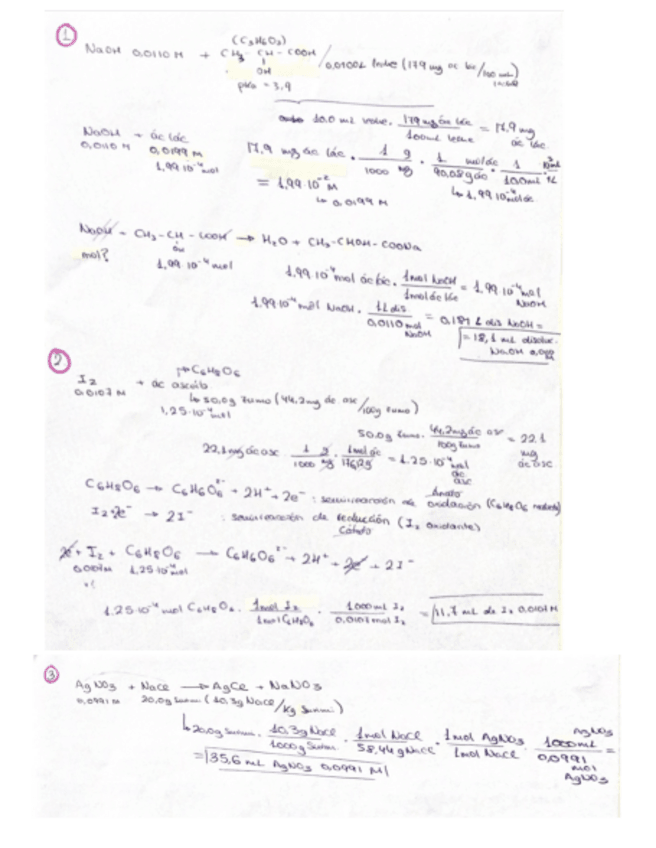 1
(C3H6O3)
NaOH 0.0110 M + CH3 - CH - COOH / 0,0100L leche (179 mg ác lác/100 mL leche)
OH
pka = 3,9
10.0 mL leche. 179 mg ác lác / 100 mL leche = 17,9 mg ác lác
NaOH + ác lác
0,0110 M 0,0199 M
1,99·10⁻⁴ mol
17,9 mg ác lác · 1 g / 1000 mg · 1 mol ác / 90,08 g ác · 1 / 10.0 mL
= 1,99·10⁻² M
↳ 0,0199 M
↳ 1,99·10⁻⁴ mol ác
NaOH + CH3 - CH - COOH → H2O + CH3 - CHOH - COONa
OH
mol? 1,99·10⁻⁴ mol
1,99·10⁻⁴ mol ác lác · 1 mol NaOH / 1 mol ác lác = 1,99·10⁻⁴ mol NaOH
1.99·10⁻⁴ mol NaOH · 1 L dis / 0,0110 mol NaOH = L dis NaOH =
= 18,1 mL disoluc. NaOH
2
C6H8O6
I2 + ác ascórb
0.0107 M
↳ 50,0 g zumo (44,2 mg ác asc/100 g zumo)
1,25·10⁻⁴ mol
50.0 g zumo · 44,2 mg ác asc / 100 g zumo = 22.1 mg ác asc.
22,1 mg ác asc · 1 g / 1000 mg · 1 mol ác / 176,12 g = 1.25·10⁻⁴ mol ác asc
C6H8O6 → C6H6O6 + 2H⁺ + 2e⁻ : semirreacción de oxidación (C6H8O6 reductor)
Ánodo
I2 + 2e⁻ → 2I⁻ : semirreacción de reducción (I2 oxidante)
Cátodo
2e⁻ + I2 + C6H8O6 → C6H6O6 + 2H⁺ + 2e⁻ + 2I⁻
1,25·10⁻⁴ mol
1.25·10⁻⁴ mol C6H8O6 · 1 mol I2 / 1 mol C6H8O6 · 1000 mL I2 / 0.0107 mol I2 = 11,7 mL de I2 0.0107 M
3
AgNO3 + NaCl → AgCl + NaNO3
0,0991 M 20,0 g Surimi (10,3 g NaCl/kg Surimi)
↳ 20,0 g Surimi · 10,3 g NaCl / 1000 g Surimi · 1 mol NaCl / 58,44 g NaCl · 1 mol AgNO3 / 1 mol NaCl · 1000 mL AgNO3 / 0,0991 mol AgNO3 =
= 35,6 mL AgNO3 0.0991 M